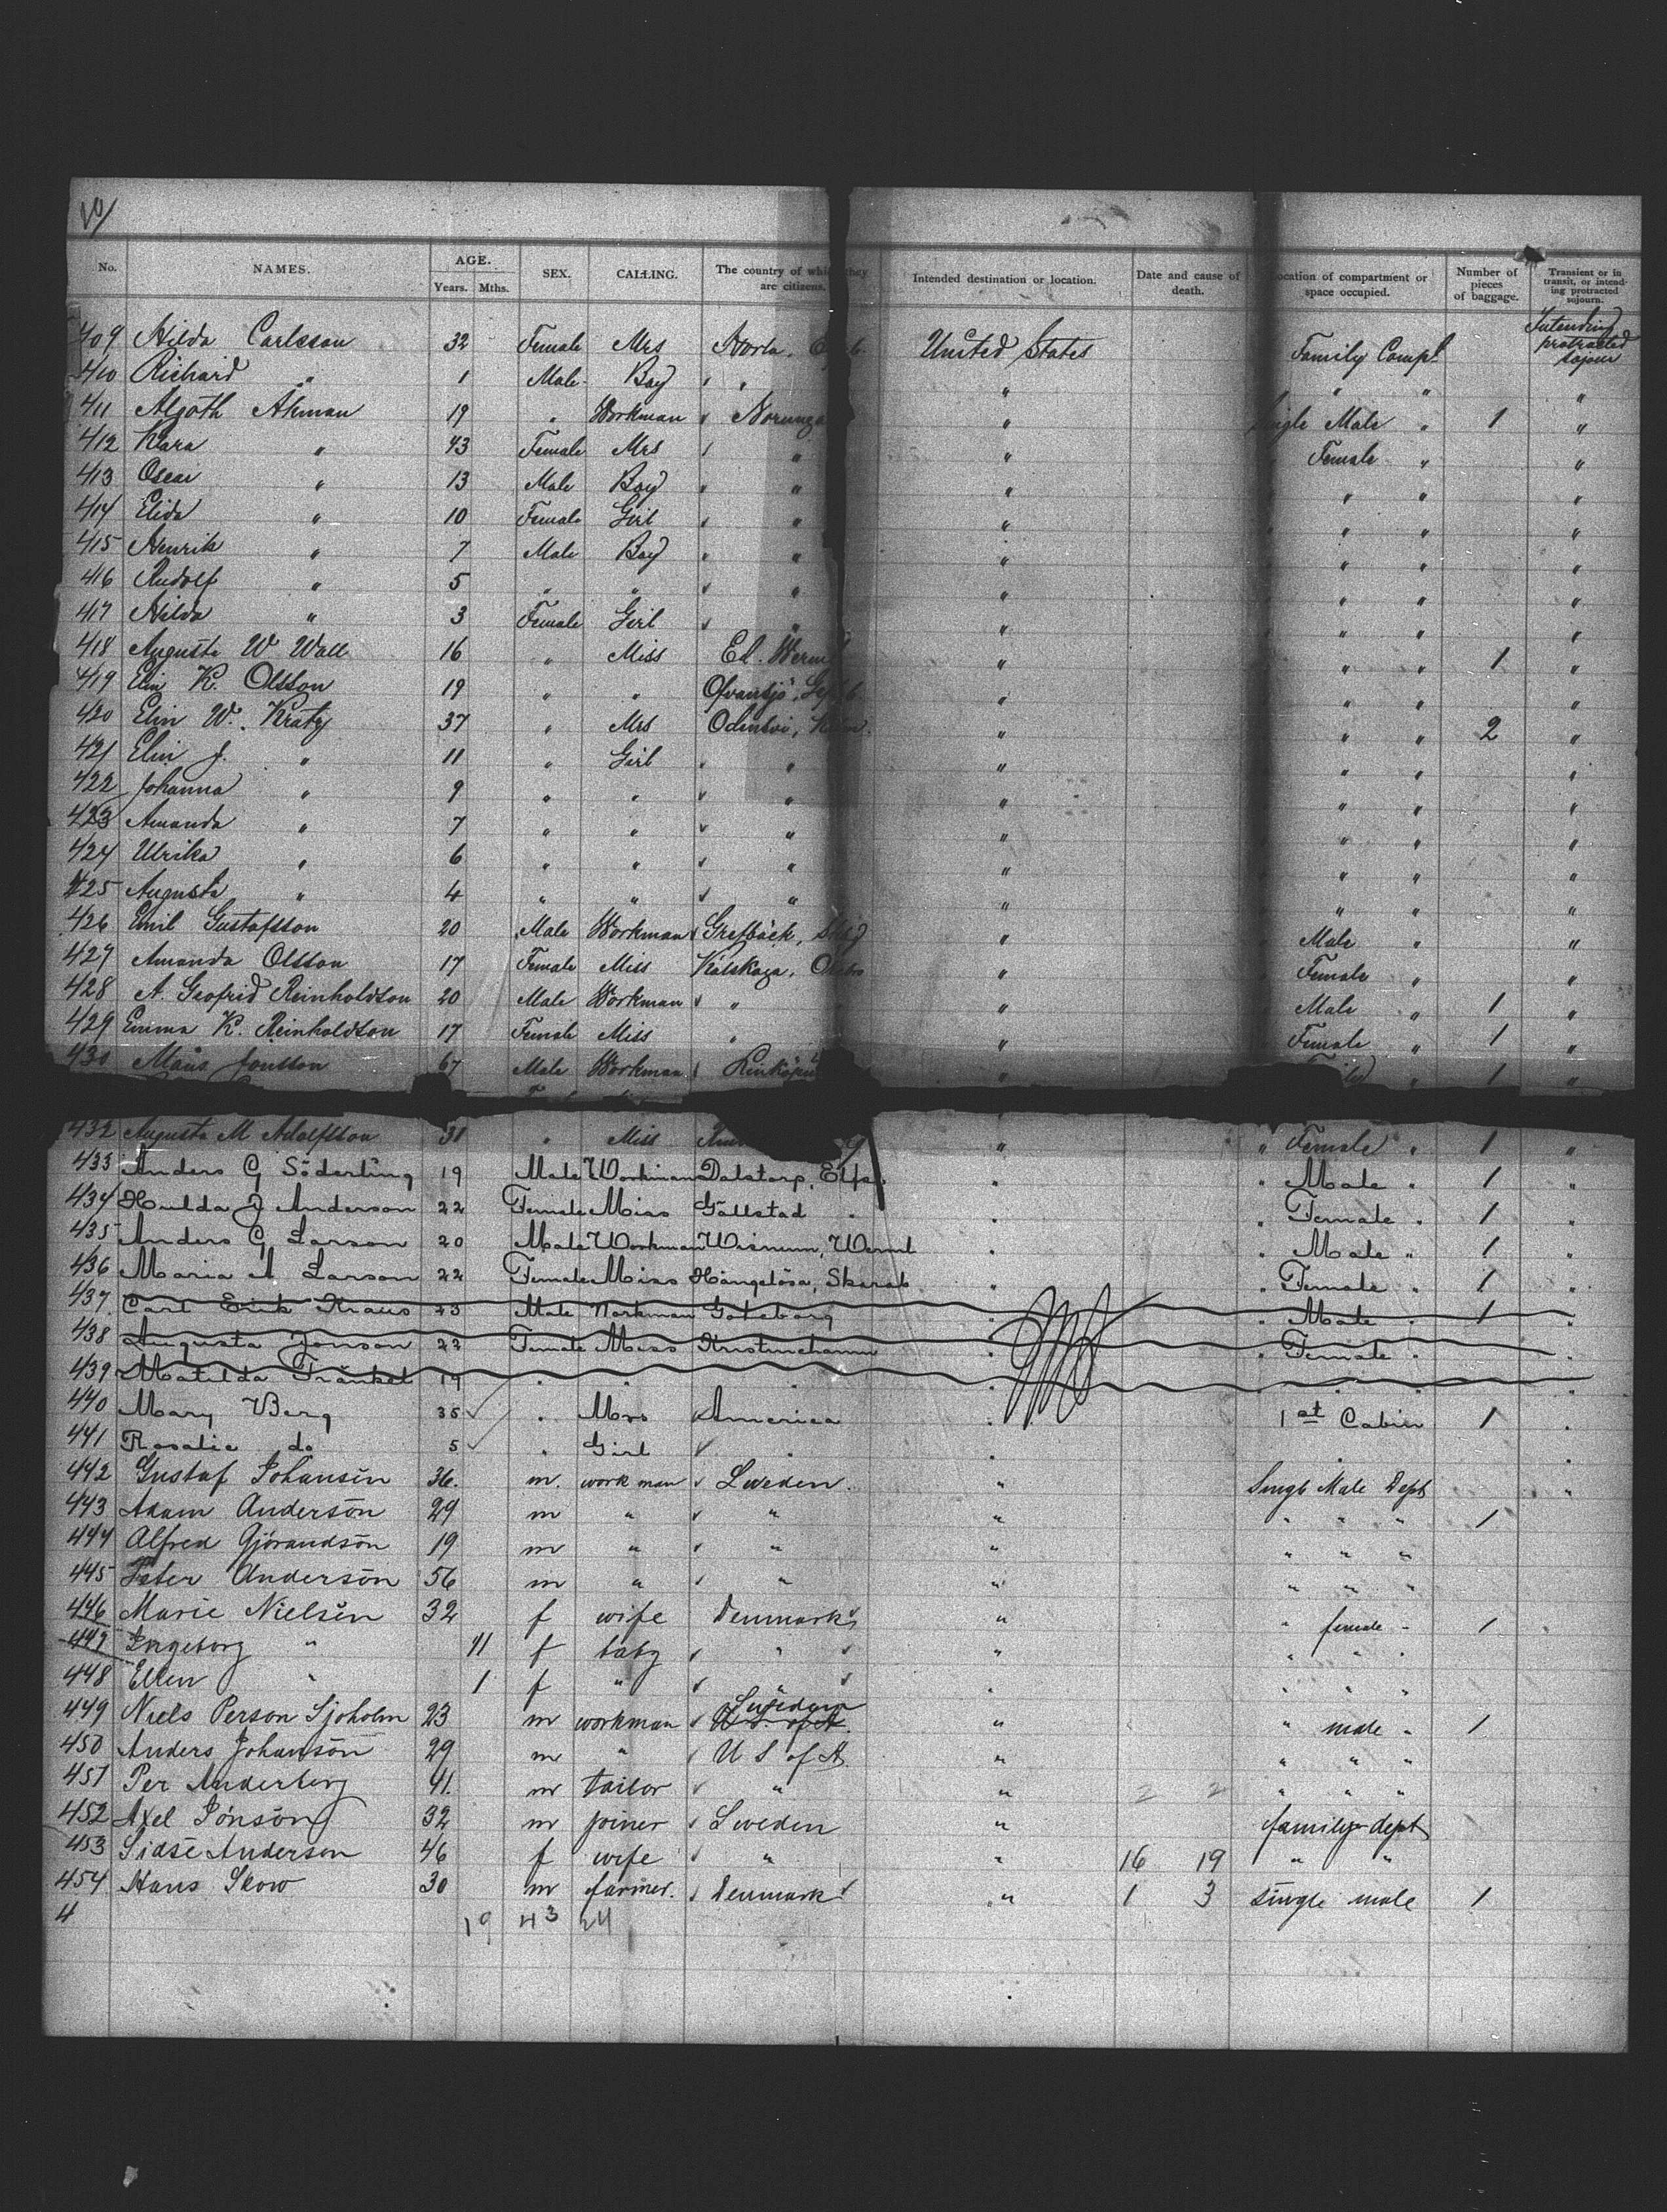 10/
No. NAMES. AGE. Years. Mths. SEX. CALLING. The country of which they are citizens. Intended destination or location. Date and cause of death. Location of compartment or space occupied. Number of pieces of baggage. Transient or in transit, or intending protracted sojourn.
409 Hilda Carlsson 32 Female Mrs Norla, United States Family Compt Intending protracted sojour
410 Richard " 1 Male Boy " " " " " "
411 Algoth Åhman 19 " Workman Norunga " Single Male " 1 "
412 Klara " 43 Female Mrs " " Female " "
413 Oscar " 13 Male Boy " " " " "
414 Elida " 10 Female Girl " " " " "
415 Henrik " 7 Male Boy " " " " "
416 Rudolf " 5 " " " " " " "
417 Hilda " 3 Female Girl " " " " "
418 Augusta W Wall 16 " Miss Ed. Werml " " " 1 "
419 Elin K. Olsson 19 " " Ofvansjö, " " " "
420 Elin W. Kratz 37 " Mrs Odensvi, " " " 2 "
421 Elin J. " 11 " Girl " " " " "
422 Johanna " 9 " " " " " " "
423 Amanda " 7 " " " " " " "
424 Ulrika " 6 " " " " " " "
425 Augusta " 4 " " " " " " "
426 Emil Gustafsson 20 Male Workman Grefbäck, " Male " "
427 Amanda Olsson 17 Female Miss Kälskoga, " Female " "
428 A. Geofrid Reinholdson 20 Male Workman " " Male " 1 "
429 Emma K. Reinholdson 17 Female Miss " " Female " 1 "
430 Måns Jönsson 67 Male Workman Linköping " " 1 "
432 Augusta M Adolfsson 31 " Miss " " Female " 1 "
433 Anders G Söderling 19 Male Workman Dalstorp, Elfsb. " " Male " 1 "
434 Hulda J Anderson 22 Female Miss Gällstad " " " Female " 1 "
435 Anders G Larson 20 Male Workman Wisnum, Werml " " Male " 1 "
436 Maria A Larson 22 Female Miss Hångelösa, Skarab " " Female " 1 "
437 Carl Erik Kraus 23 Male Workman Goteborg " " Male " 1 "
438 Augusta Jonson 22 Female Miss Kristinehamn " " Female " "
439 Matilda Fränkel 19 " " " " " " " "
440 Mary Berg 35 " Mrs America " 1st Cabin 1 "
441 Rosalie do 5 " Girl " " " "
442 Gustaf Johansen 36. m. work man Sweden. " Singl Male Dept "
443 Adam Anderson 29 m " " " " " " 1
444 Alfred Gjörandson 19 m " " " " " "
445 Peter Anderson 56 m " " " " " "
446 Marie Nielsen 32 f wife Denmark " " female " 1
447 Ingeborg " 11 f baby " " " " "
448 Ellen " 1 f " " " " " "
449 Niels Person Sjoholm 23 m workman U.S. of A. Sweden " " male " 1
450 Anders Johanson 29 m " U S of A " " " "
451 Per Anderberg 41. m tailor " " 2 2 " " "
452 Axel Jönson 32 m joiner Sweden " family dept
453 Sidse Anderson 46 f wife " " 16 19 " "
454 Hans Skow 30 m farmer. Denmark " 1 3 single male 1
4 19 43 24